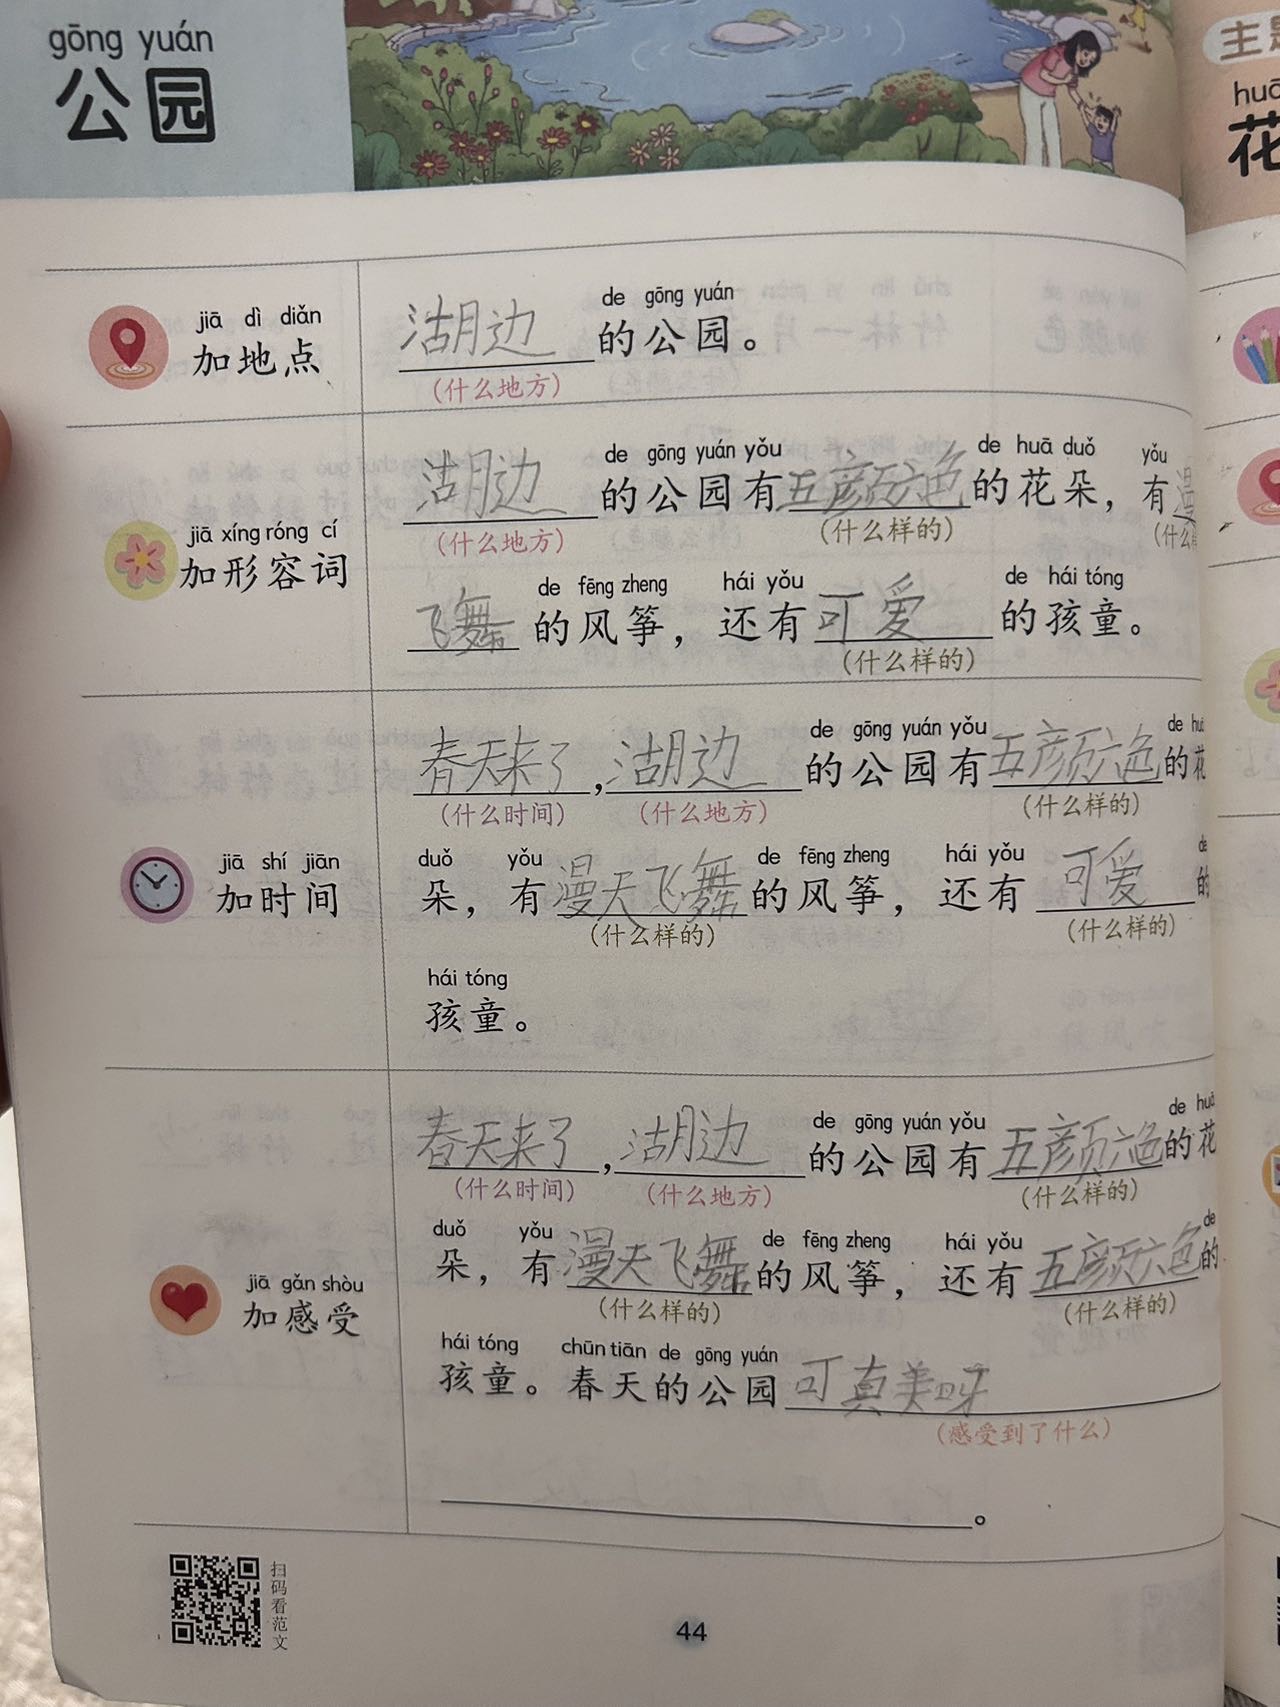 gōng yuán
公园
主
huā
花
jiā dì diǎn
加地点
湖边
de gōng yuán
的公园。
(什么地方)
jiā xíng róng cí
加形容词
de gōng yuán yǒu de huā duǒ yǒu
湖边的公园有五颜六色的花朵，有漫
(什么地方) (什么样的) (什么
de fēng zheng hái yǒu de hái tóng
飞舞的风筝，还有可爱的孩童。
(什么样的)
jiā shí jiān
加时间
de gōng yuán yǒu de
春天来了，湖边的公园有五颜六色的花
(什么时间) (什么地方) (什么样的)
duǒ yǒu de fēng zheng hái yǒu de
朵，有漫天飞舞的风筝，还有可爱的
(什么样的) (什么样的)
hái tóng
孩童。
jiā gǎn shòu
加感受
de gōng yuán yǒu de huā
春天来了，湖边的公园有五颜六色的花
(什么时间) (什么地方) (什么样的)
duǒ yǒu de fēng zheng hái yǒu de
朵，有漫天飞舞的风筝，还有五颜六色的
(什么样的) (什么样的)
hái tóng chūn tiān de gōng yuán
孩童。春天的公园可真美呀
(感受到了什么)
。
扫码看范文
44